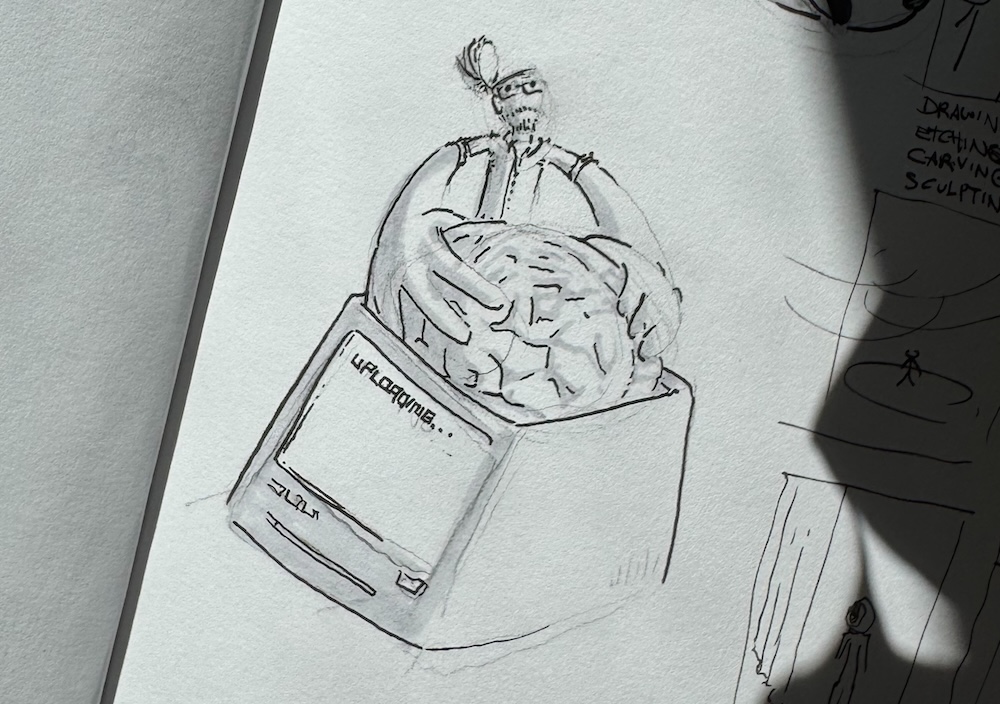 UPLOADING...
DRAWIN
ETCHING
CARVING
SCULPTIN